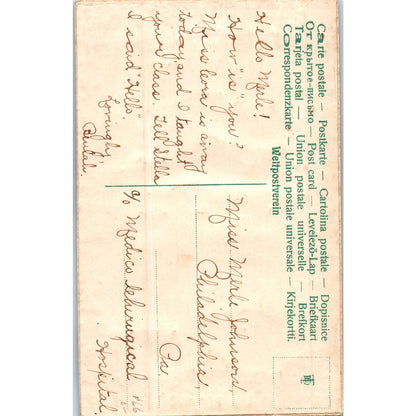 Carte postale — Postkarte — Cartolina postale — Dopisnice
От крытое-письмо — Post card — Levelező-Lap — Briefkaart
Tarjeta postal — Union postale universelle — Brefkort
Correspondenzkarte — Union postale universale — Kirjekortti.
Weltpostverein
Hello Merle!
How "is" you?
Miss Leora is away
today and I taught
your class. Tell Stella
I said "Hello".
Lovingly
Beulah.
Miss Merle Johnson,
Philadelphia,
Pa.
c/o Medico Chirurgical
Hospital.